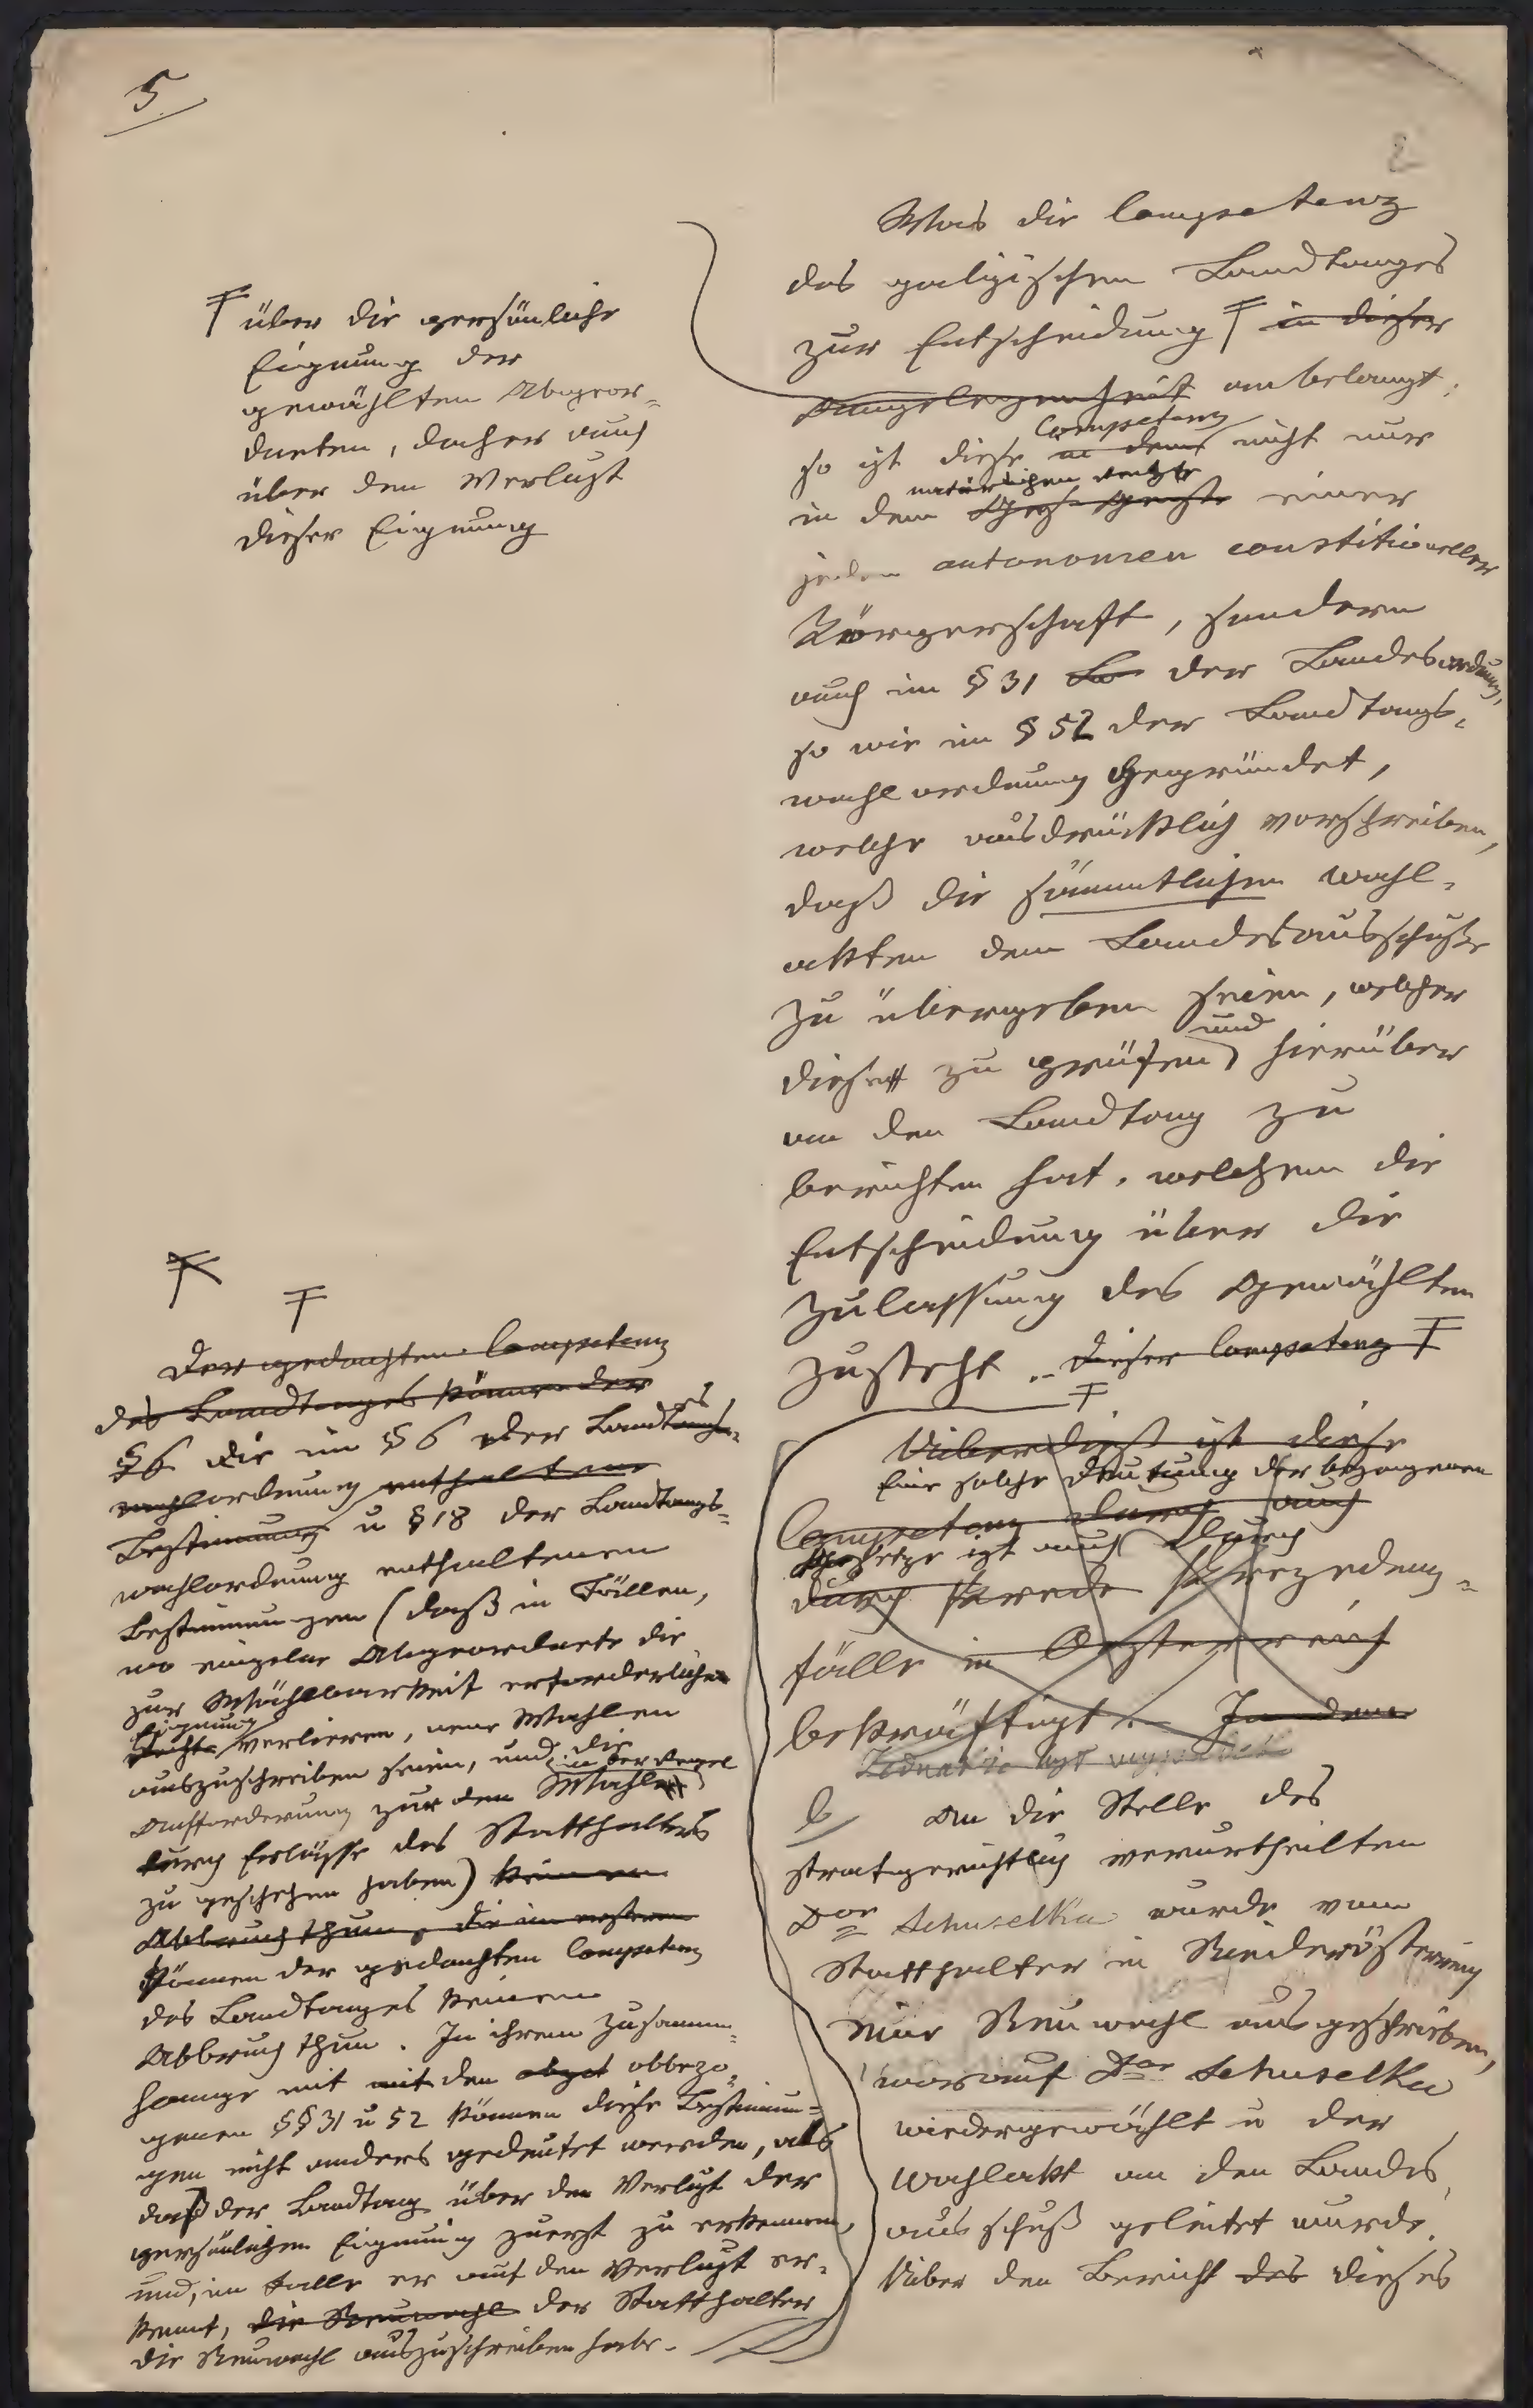 5
2
Was die Competenz
des galizischen Landtages
zur Entscheidung in dieser
Angelegenheit anbelangt,
Competenz
so ist diese in dem nicht nur
natürlichen Rechte
in dem Geiste einer
jeden autonomen constitutioneller
Körperschaft, sondern
auch im § 31 Lo der Landesordnung,
so wie im § 52 der Landtags-
wahlordnung gegründet,
welche ausdrücklich vorschreiben,
daß die sämmtlichen Wahl-
akten dem Landesausschuße
zu übergeben seien, welcher
und
diese zu prüfen hierüber
an den Landtag zu
berichten hat, welchem die
Entscheidung über die
Zulassung des Gewählten
zusteht. dieser Competenz
Überdieß ist diese
Eine solche Deutung der bezogenen
Competenz durch auch
Gesetze ist auch durch
durch Präzedenz-
fälle in Oesterreich
bekräftigt. In dem
b/ An die Stelle des
strafgerichtlich verurtheilten
Dor Schuselka wurde vom
Statthalter in Niederösterreich
eine Neuwahl ausgeschrieben,
worauf Dor Schuselka
wiedergewählt u der
Wahlakt an den Landes-
ausschuß geleitet wurde.
Über den Bericht des dieses
über die persönliche
Eignung der
gewählten Abgeor-
dneten, daher auch
über den Verlust
dieser Eignung
Der gedachten Competenz
des Landtages können der
§ 6 die im § 6 der Landes
wahlordnung enthaltene
Bestimmung u § 18 der Landtags-
wahlordnung enthaltenen
Bestimmungen (daß in Fällen,
wo einzelne Abgeordnete die
zur Wählbarkeit erforderliche
Eignung
Rechte verlieren, neue Wahlen
auszuschreiben seien, und die
in der Regel
Aufforderung zur den Wahlen
durch Erlässe des Statthalters
zu geschehen haben) keinen
Abbruch thun, die im ersteren
können der gedachten Competenz
des Landtages keinen
Abbruch thun. In ihrem Zusammen-
hange mit mit den obbezo-
genen §§ 31 u 52 können diese Bestimmun-
gen nicht anders gedeutet werden, als
daß der Landtag über den Verlust der
persönlichen Eignung zuerst zu erkennen,
und, im Falle er auf den Verlust er-
kennt, die Neuwahl der Statthalter
die Neuwahl auszuschreiben habe.